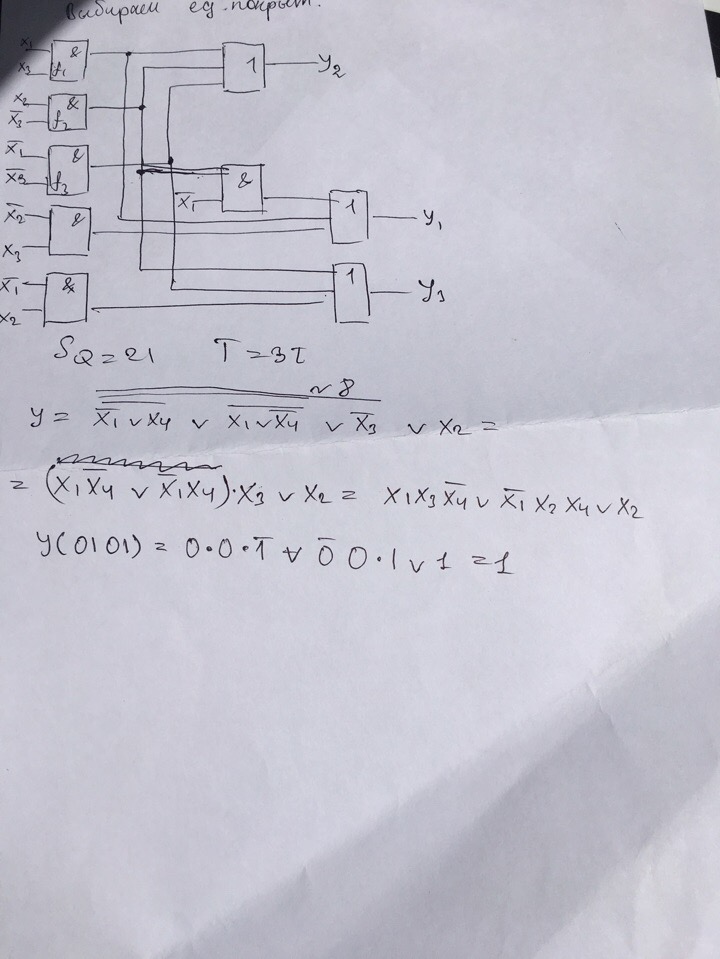 Выбираем ед. покрыт.
x₁ & 1 y₂
x₃ f₁
x₂ &
x̅₃ f₂
x̅₁ &
x̅₃ f₃ &
x̅₁
x̅₂ & 1 y₁
x₃
x̅₁ & 1 y₃
x₂
S_Q = 21 T = 3τ
~ 8
y = x̅₁ ∨ x₄ ∨ x₁ ∨ x̅₄ ∨ x̅₃ ∨ x₂ =
= (x₁x̅₄ ∨ x̅₁x₄)·x₃ ∨ x₂ = x₁x₃x̅₄ ∨ x̅₁x₂x₄ ∨ x₂
y(0101) = 0·0·1̅ ∨ 0̅ 0·1 ∨ 1 = 1